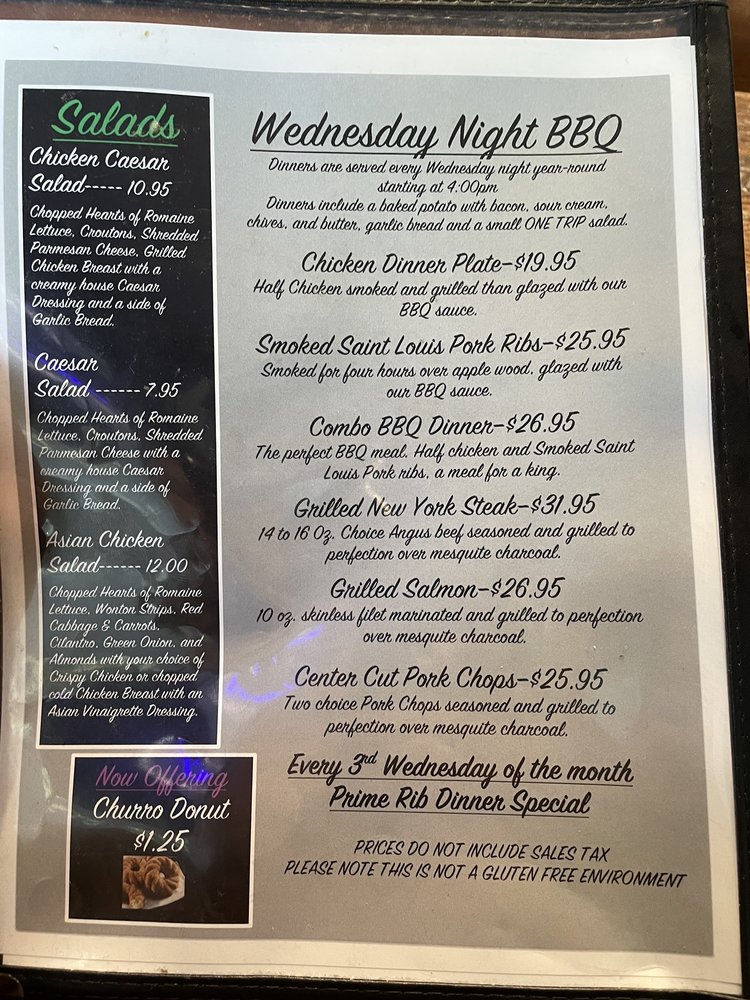 Salads
Chicken Caesar
Salad----- 10.95
Chopped Hearts of Romaine
Lettuce, Croutons, Shredded
Parmesan Cheese, Grilled
Chicken Breast with a
creamy house Caesar
Dressing and a side of
Garlic Bread.
Caesar
Salad ------ 7.95
Chopped Hearts of Romaine
Lettuce, Croutons, Shredded
Parmesan Cheese with a
creamy house Caesar
Dressing and a side of
Garlic Bread.
Asian Chicken
Salad------ 12.00
Chopped Hearts of Romaine
Lettuce, Wonton Strips, Red
Cabbage & Carrots,
Cilantro, Green Onion, and
Almonds with your choice of
Crispy Chicken or chopped
cold Chicken Breast with an
Asian Vinaigrette Dressing.
Now Offering
Churro Donut
$1.25
Wednesday Night BBQ
Dinners are served every Wednesday night year-round
starting at 4:00pm
Dinners include a baked potato with bacon, sour cream,
chives, and butter, garlic bread and a small ONE TRIP salad.
Chicken Dinner Plate-$19.95
Half Chicken smoked and grilled than glazed with our
BBQ sauce.
Smoked Saint Louis Pork Ribs-$25.95
Smoked for four hours over apple wood, glazed with
our BBQ sauce.
Combo BBQ Dinner-$26.95
The perfect BBQ meal, Half chicken and Smoked Saint
Louis Pork ribs, a meal for a king.
Grilled New York Steak-$31.95
14 to 16 Oz. Choice Angus beef seasoned and grilled to
perfection over mesquite charcoal.
Grilled Salmon-$26.95
10 oz. skinless filet marinated and grilled to perfection
over mesquite charcoal.
Center Cut Pork Chops-$25.95
Two choice Pork Chops seasoned and grilled to
perfection over mesquite charcoal.
Every 3rd Wednesday of the month
Prime Rib Dinner Special
PRICES DO NOT INCLUDE SALES TAX
PLEASE NOTE THIS IS NOT A GLUTEN FREE ENVIRONMENT